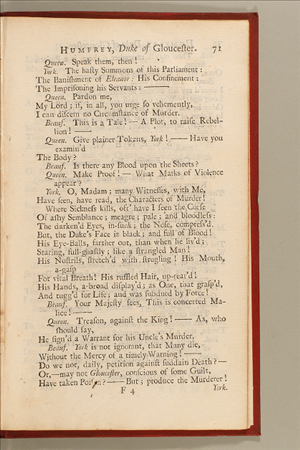 HUMFREY, Duke of Gloucester. 71
Queen. Speak them, then!
York. The hasty Summons of this Parliament:
The Banishment of Eleanor: His Confinement:
The Imprisoning his Servants: ——
Queen. Pardon me,
My Lord; if, in all, you urge so vehemently,
I can discern no Circumstance of Murder.
Beauf. This is a Tale! — A Plot, to raise Rebel-
lion! ——
Queen. Give plainer Tokens, York! — Have you
examin'd
The Body?
Beauf. Is there any Blood upon the Sheets?
Queen. Make Proof! — What Marks of Violence
appear?
York. O, Madam; many Witnesses, with Me,
Have seen, have read, the Characters of Murder!
Where Sickness kills, oft' have I seen the Corse
Of ashy Semblance; meagre; pale; and bloodless:
The darken'd Eyes, in-sunk; the Nose, compress'd.
But, the Duke's Face is black; and full of Blood!
His Eye-Balls, farther out, than when he liv'd;
Staring, full-ghastly; like a strangled Man!
His Nostrils, stretch'd with strugling! His Mouth,
a-gasp
For vital Breath! His ruffled Hair, up-rear'd!
His Hands, a-broad display'd; as One, that grasp'd,
And tugg'd for Life; and was subdued by Force!
Beauf. Your Majesty sees, This is concerted Ma-
lice! ——
Queen. Treason, against the King! —— As, who
should say,
He sign'd a Warrant for his Uncle's Murder.
Beauf. York is not ignorant, that Many die,
Without the Mercy of a timely Warning! ——
Do we not, daily, petition against suddain Death? —
Or, — may not Gloucester, conscious of some Guilt,
Have taken Poison? —— But; produce the Murderer!
F 4 York.